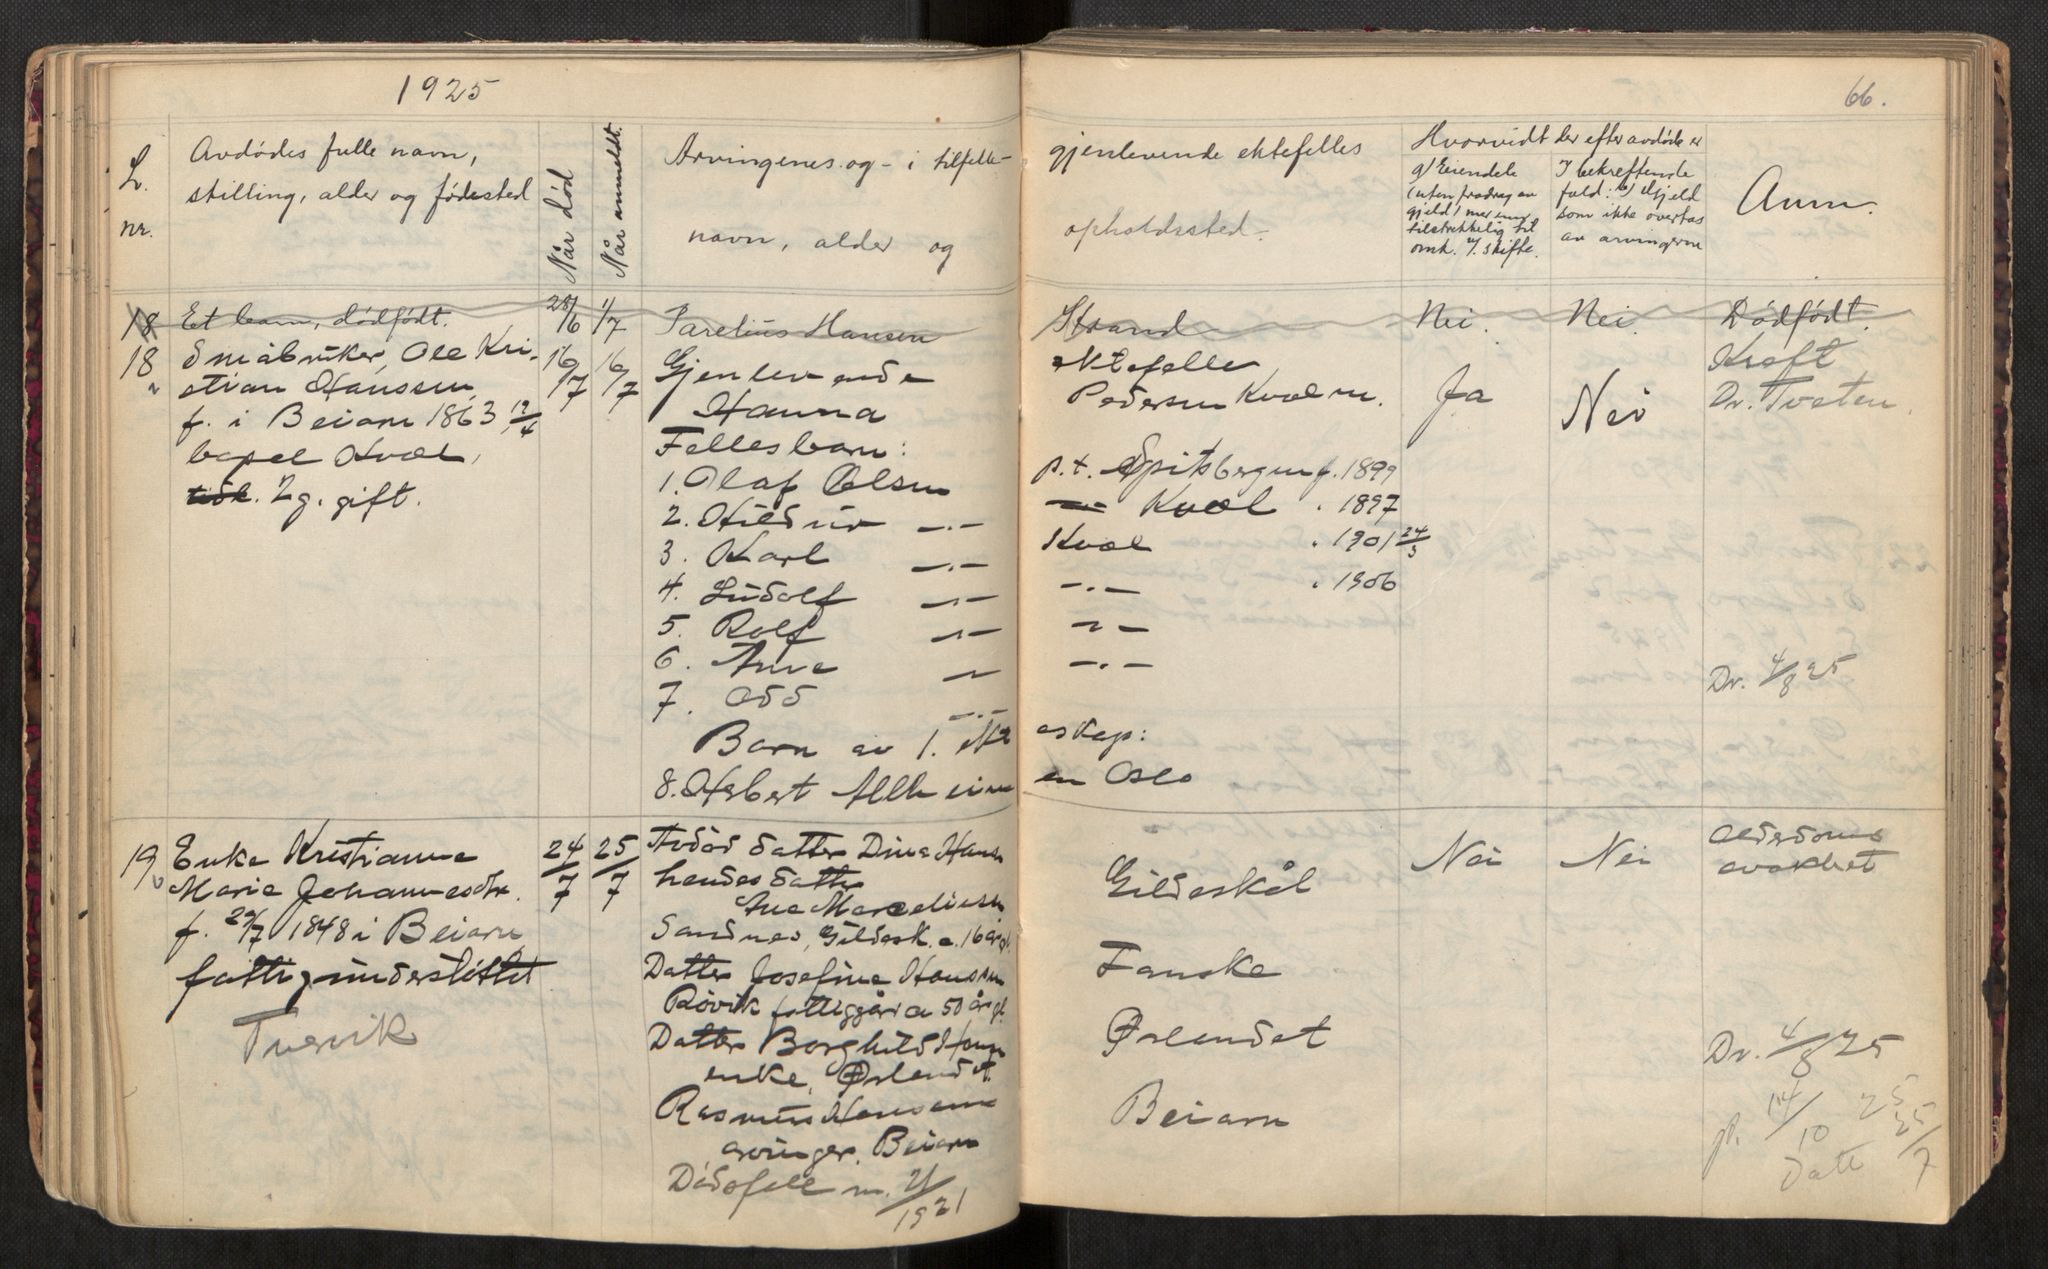 1925
66.
L. nr.
Avdødes fulle navn,
stilling, alder og fødested
Når død
Når anmeldt.
Arvingenes og - i tilfelle -
navn, alder og
gjenlevende ektefelles
opholdssted.
Hvorvidt der efter avdøde er
a) Eiendele
(uten fradrag av
gjeld) mer enn
tilstrekkelig til
omk. v/ skifte.
I bekreftende
fald: b) Gjeld
som ikke overtas
av arvingerne
Anm.
18 Et barn, dødfødt. 28/6 1/7 Parelius Hansen Strand Nei. Nei. Dødfødt.
18 Småbruker Ole Kri- 16/7 16/7 Gjenlevende ektefelle Kreft
stian Hanssen, Hanna Pedersen Kvæl Ja Nei Dr. Tveten.
f. i Beiarn 1863, 19/4
bopel Kvæl,
2 g. gift.
Fellesbarn:
1. Olaf Olsen p.t. Spitsbergen f. 1899
2. Hildur —.— Kvæl . 1897
3. Karl —.— Kvæl . 1901 24/3
4. Ludolf —.— —.— . 1906
5. Rolf —„— —„—
6. Arne „ —.—
7. Odd —.—
Dr. 4/8 25
Barn av 1. ekteskap:
8. Herbert Allheim en Oslo
19 Enke Kristianne 24/7 25/7 Avdød datter Dina Hans
Marie Johannesdtr. hendes datter Gildeskål Nei Nei Alderdoms
svakhet
f. 29/7 1848 i Beiarn Ane Marceliesen
Sandnes, Gildesk. c. 16 år gl.
fattigunderstøttet Datter Josefine Hanssen Fauske
Røvik fattiggård ca 50 år gl.
Tvervik Datter Borghild Hansen Ørlandet
enke, Ørlandet.
Dr. 4/8 25
Rasmus Hansens Beiarn
arvinger, Beiarn
Dødsfall m. 21/1921
p. 14/10 25
25/7
Datt